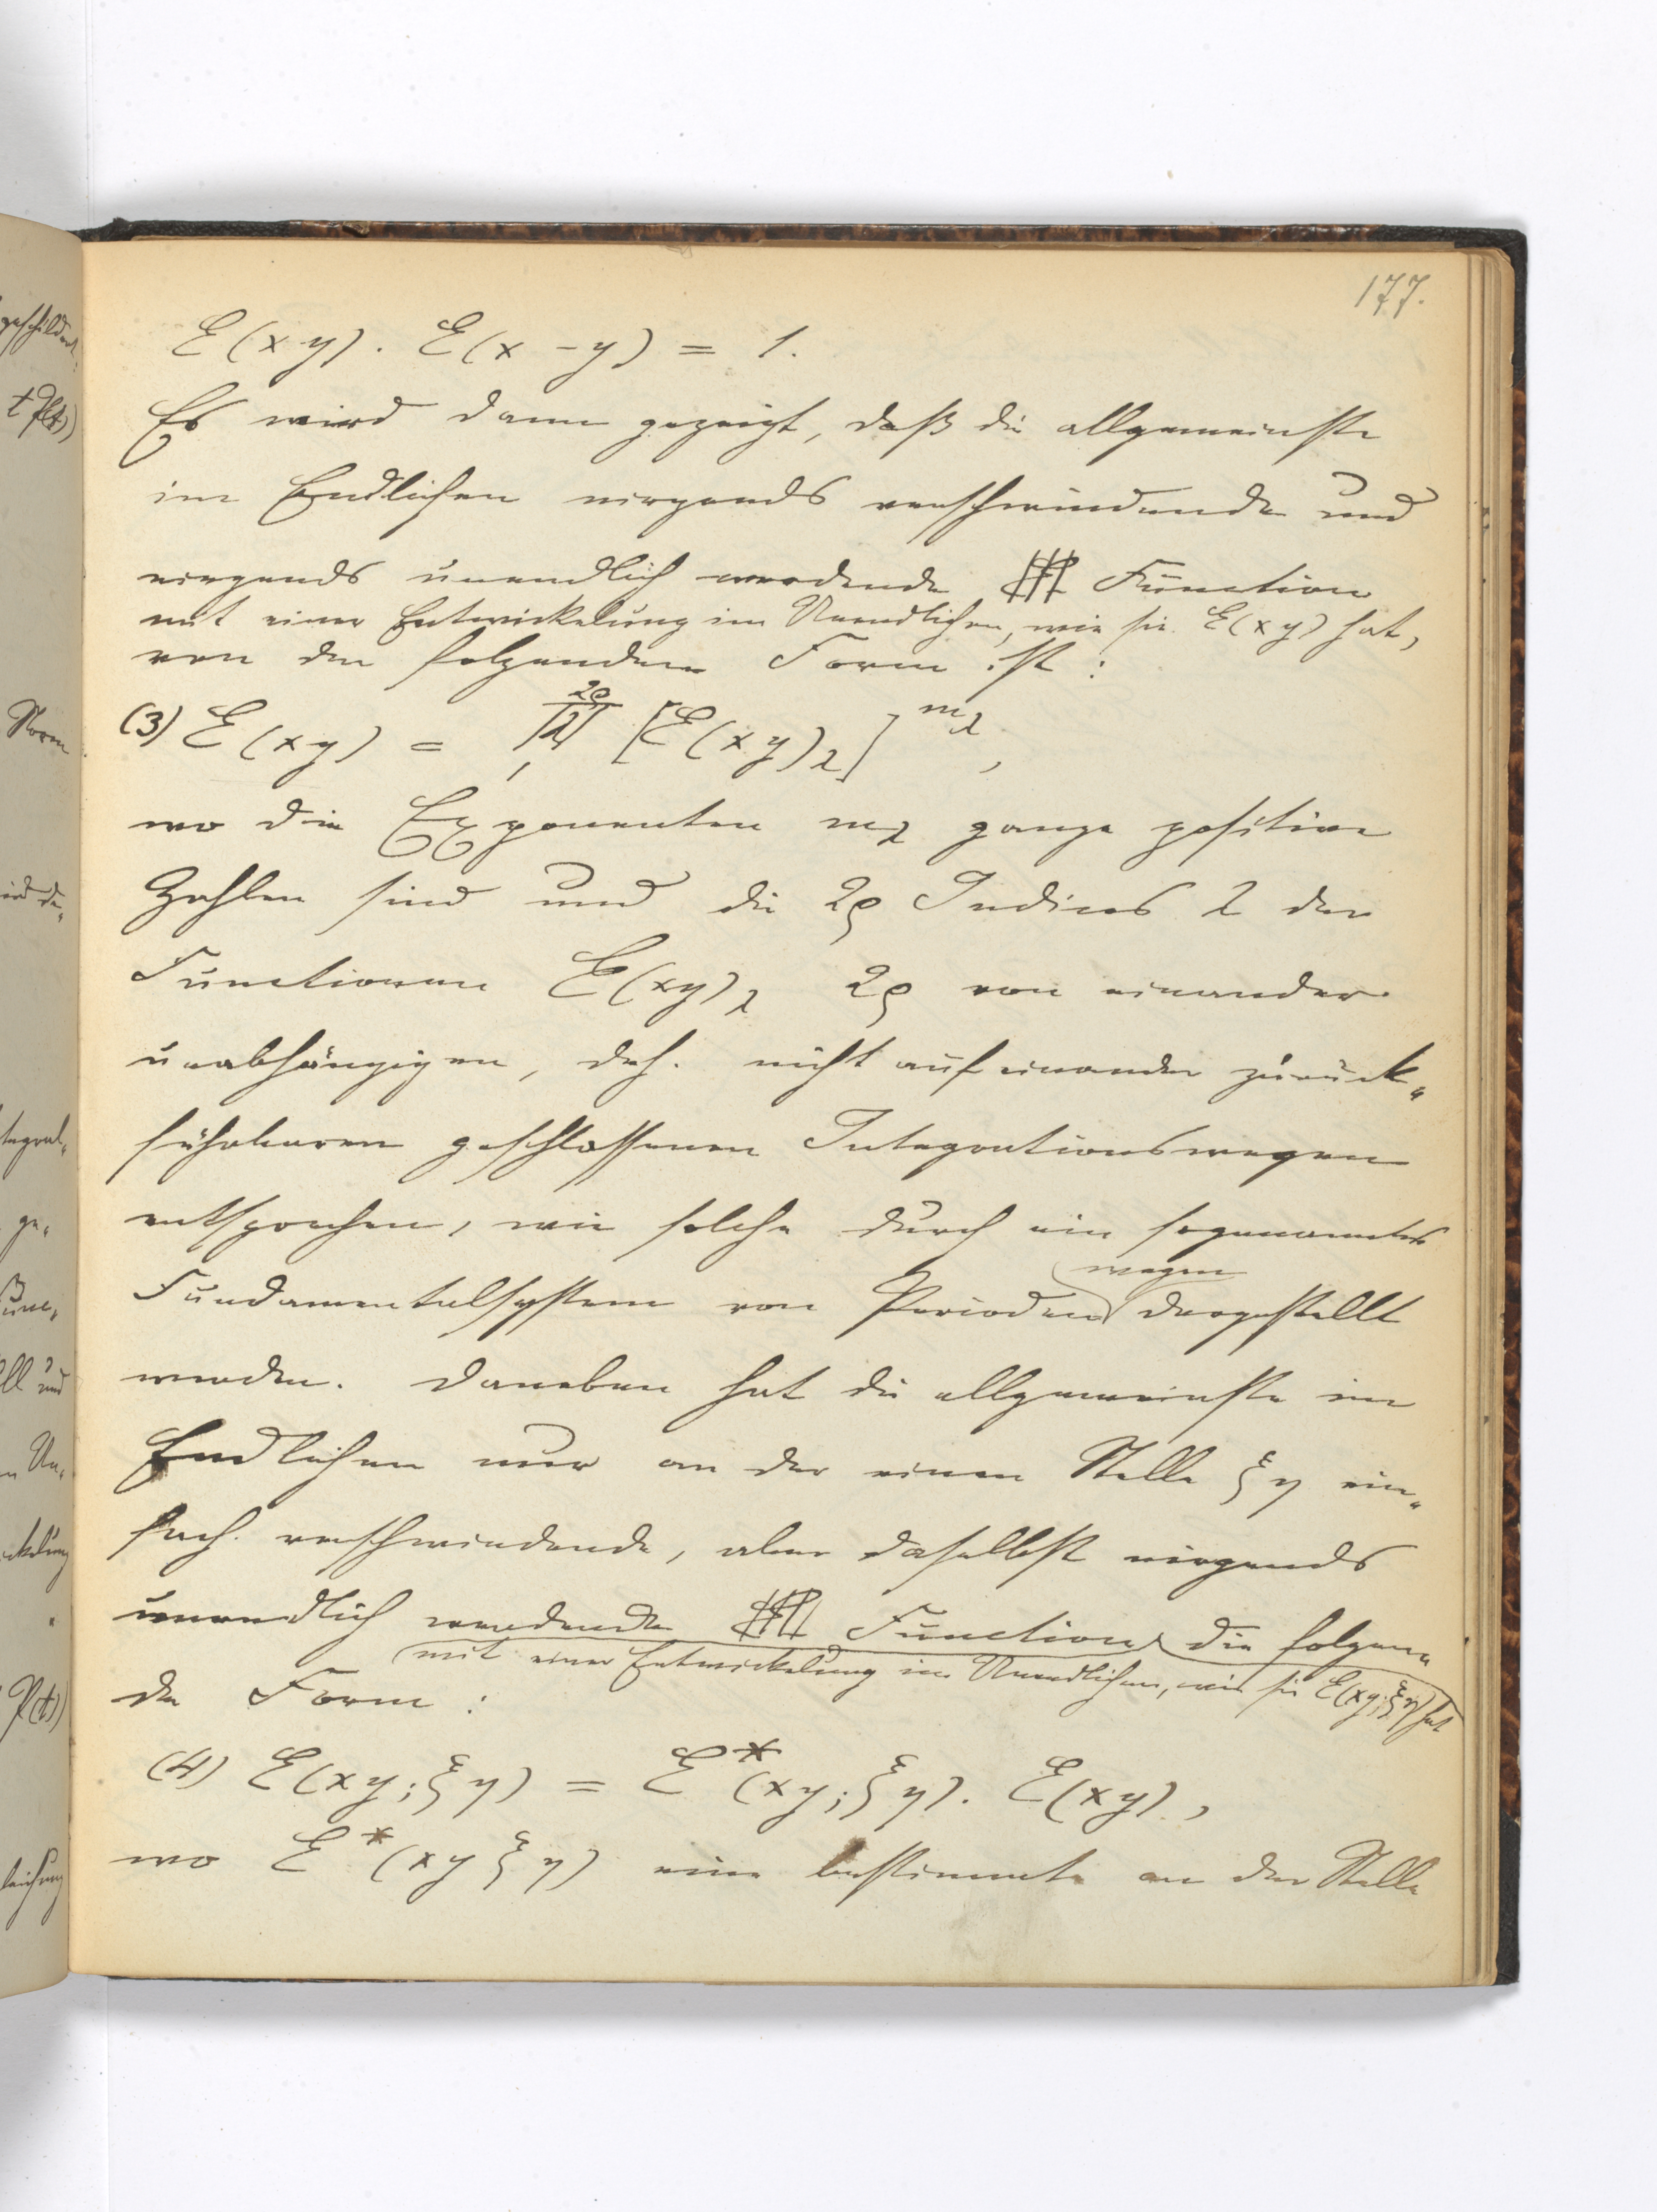 177.
E(xy). E(x -y) = 1.
Es wird dann gezeigt, daß die allgemeinste
im Endlichen nirgends verschwindende und
nirgends unendlich werdende Function
mit einer Entwickelung im Unendlichen, wie sie E(xy) hat,
von der folgenden Form ist:
(3) E(xy) = 2ρ Π λ 1 [E(xy)λ] mλ,
wo die Exponenten mλ ganze positive
Zahlen sind und die 2ρ Indices λ der
Functionen E(xy)λ 2ρ von einander
unabhängigen, d.h. nicht auf einander zurück„
führbaren geschlossenen Integrationswegen
entsprechen, wie solche durch ein sogenanntes
wegen
Fundamentalsystem von Perioden dargestellt
werden. Daneben hat die allgemeinste im
Endlichen nur an der einen Stelle ξη ein„
fach verschwindende, aber daselbst nirgends
unendlich werdende Function die folgen„
mit einer Entwickelung im Unendlichen, wie sie E(xy;ξη) hat
de Form:
(4) E(xy;ξη) = E*(xy;ξη). E(xy),
wo E*(xyξη) eine bestimmte an der Stelle
geschildert
tP(t))
Norm